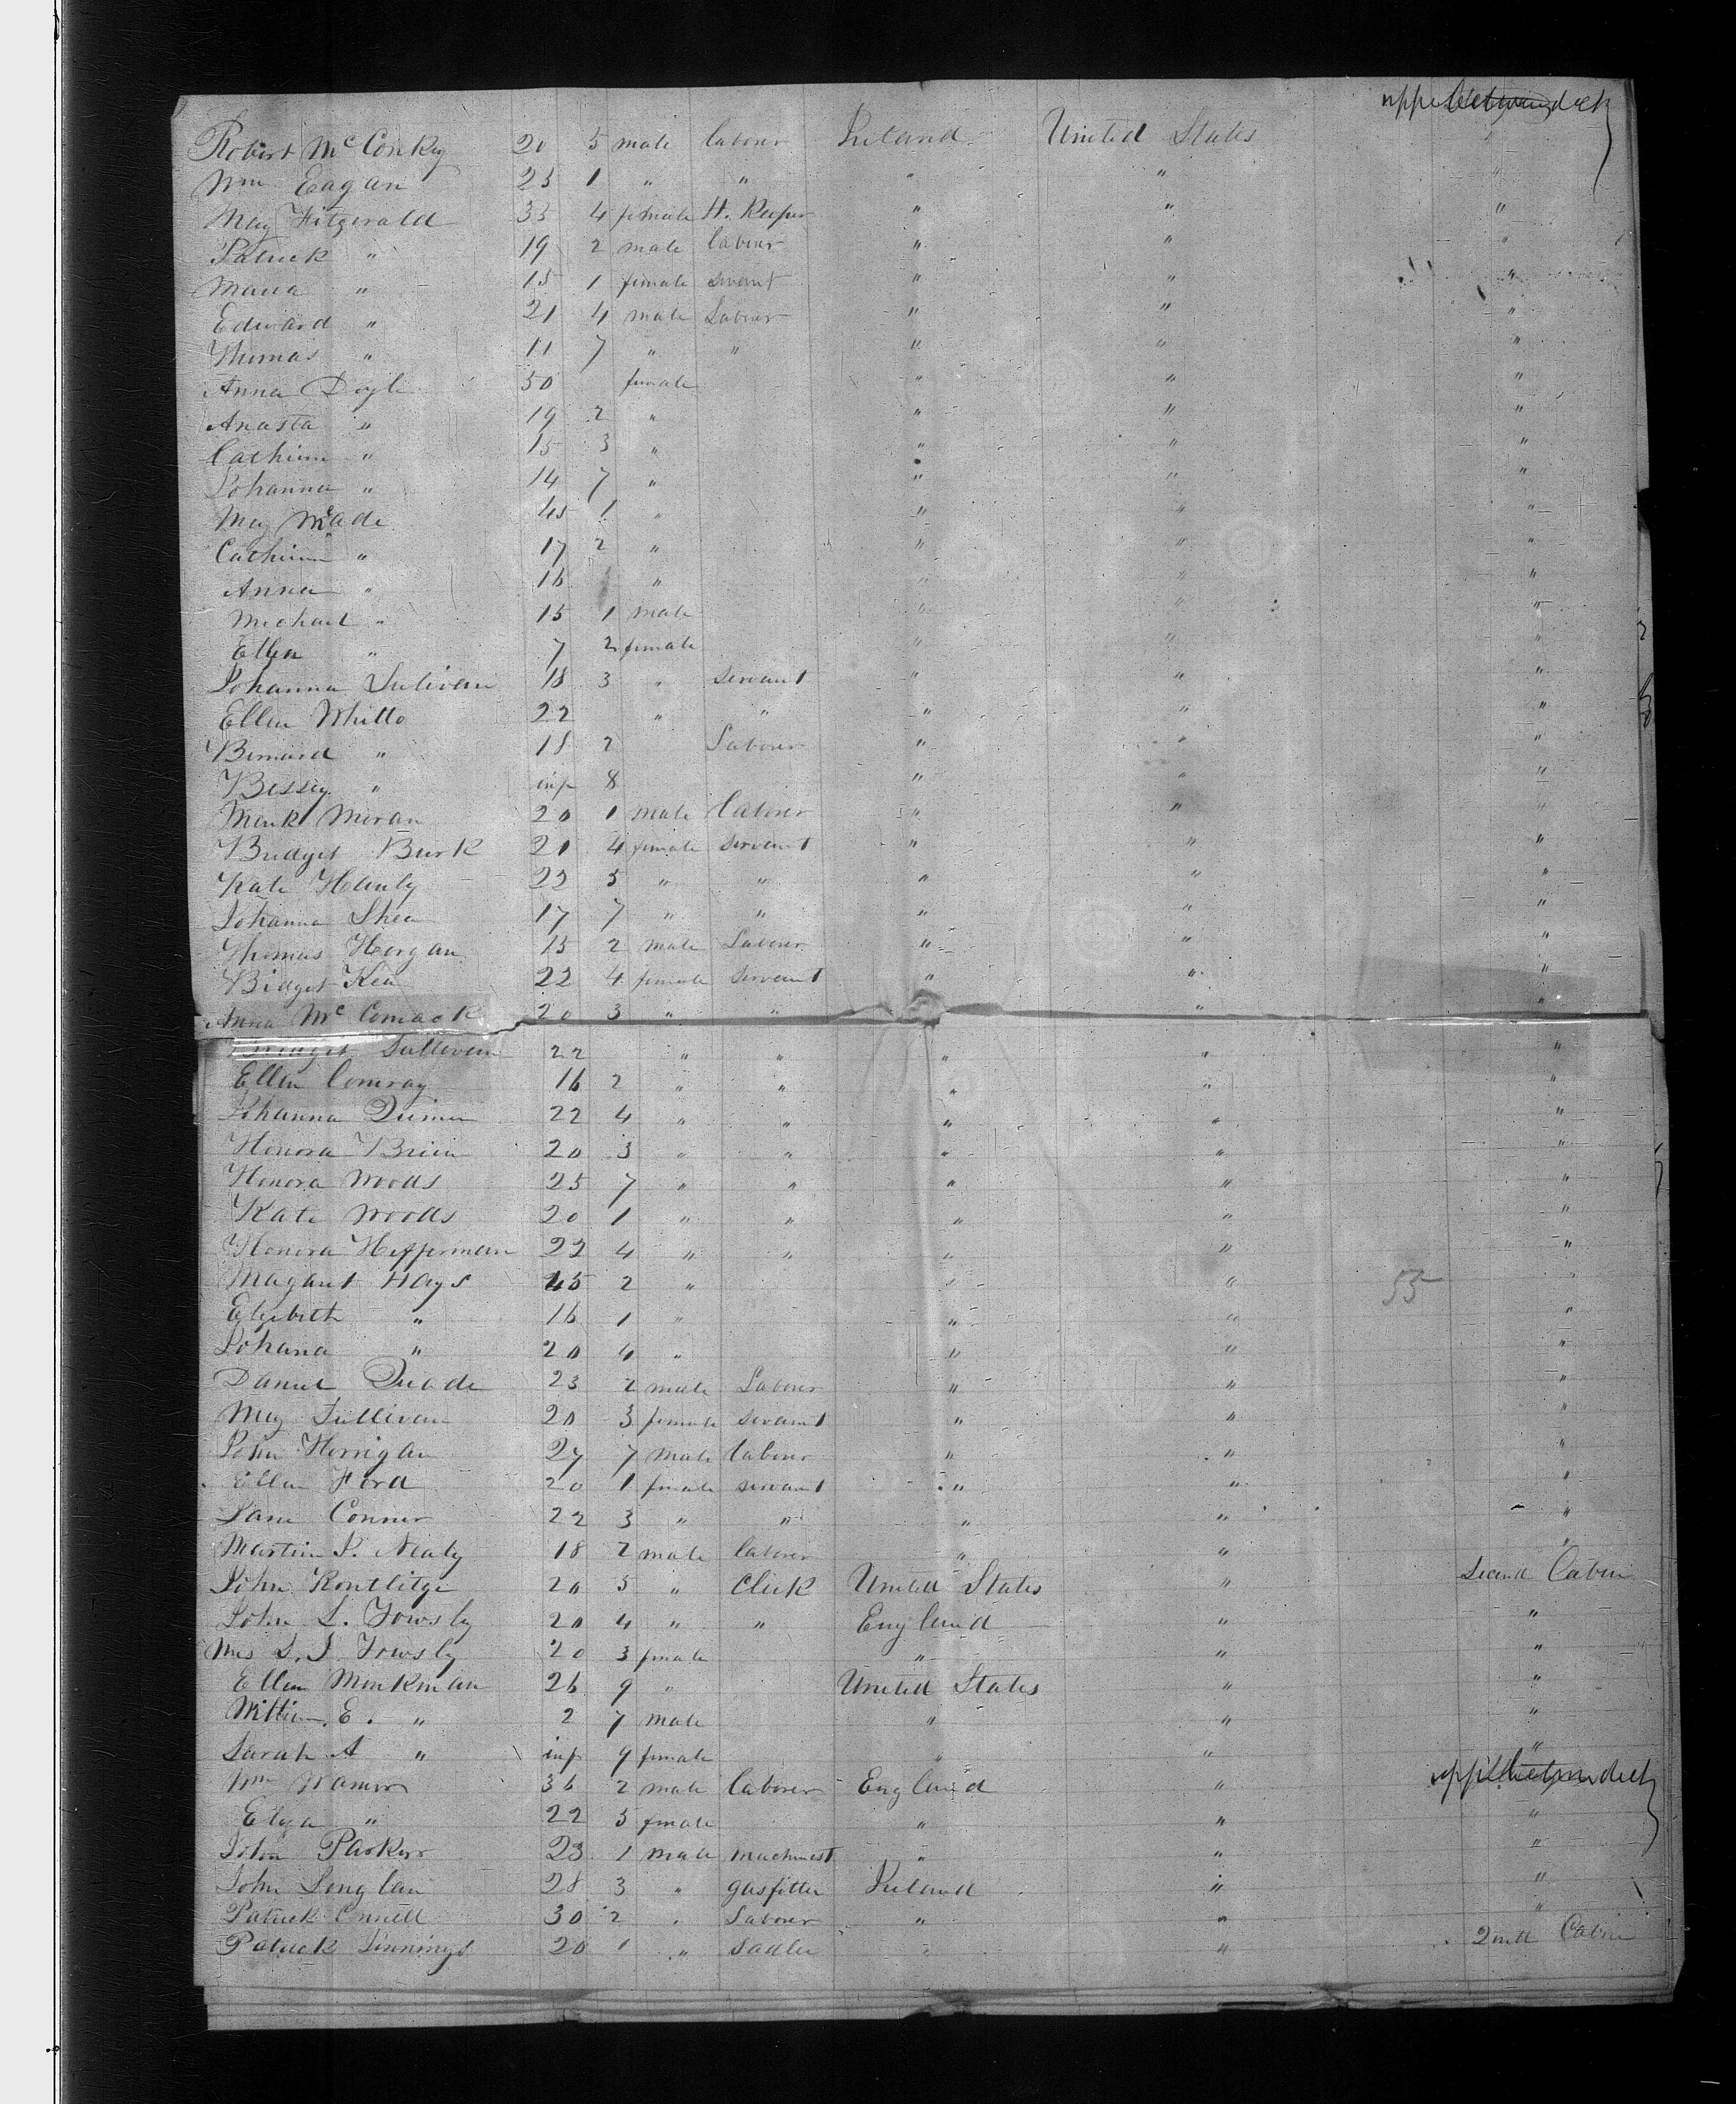 upper between deck
Robert McConkey 20 5 male laborer Ireland United States "
Wm Eagan 23 1 " " " " "
May Fitzgerald 35 4 female H. Keeper " " "
Patrick " 19 2 male laborer " " "
Maria " 15 1 female servant " " "
Edward " 21 4 male Laborer " " "
Thomas " 11 7 " " " " "
Anna Doyle 50 female " " "
Anasta " 19 2 " " " "
Catherine " 15 3 " " " "
Johanna " 14 7 " " " "
May McAde 45 1 " " " "
Catherine " 17 2 " " " "
Anna " 16 " " " "
Michael " 15 1 male " " "
Ellen " 7 2 female " " "
Johanna Sulivan 18 3 " servant " " "
Ellen Whitto 22 " " " " "
Bernard " 18 2 Laborer " " "
Bessey " inf 8 " " "
Mark Moran 20 1 male laborer " " "
Bridget Burk 21 4 female servant " " "
Kate Hanly 22 5 " " " " "
Johanna Shea 17 7 " " " " "
Thomas Horgan 15 2 male Laborer " " "
Bidget Kea 22 4 female servant " " "
Anna McComack 20 3 " " " "
Bridget Sullivan 22 " " " " "
Ellen Conroy 16 2 " " " " "
Johanna 22 4 " " " " "
Honora Brien 20 3 " " " " "
Honora Woods 25 7 " " " " "
Kate Woods 20 1 " " " " "
Honora Hefferman 22 4 " " " " "
Magaret Hays 45 2 " " " 55 "
Elizibeth " 16 1 " " " "
Johana " 20 4 " " " "
Daniel Quade 23 2 male Laborer " " "
May Sullivan 20 3 female servant " " "
John Horrigan 27 7 male laborer " " "
Ellen Ford 20 1 female servant " " "
Jane Conner 22 3 " " " " "
Martin J. Nealy 18 2 male laborer " " "
John Routlitge 20 5 " Clerk United States " Second Cabin
John L. Towsly 20 4 " " England " "
Mrs L. J. Towsly 20 3 female " " "
Ellen Monkman 26 9 " United States " "
William E. " 2 7 male " " "
Sarah A " inf 9 female " " "
Wm Warner 36 2 male laborer England " upper between deck
Eliza " 22 5 female " " "
John Parker 23 1 male machinest " " "
John Longlan 28 3 " gasfitter Ireland " "
Patrick Connell 30 2 " Laborer " " "
Patrick Jinnings 20 1 " Sadler " " 2nd Cabin